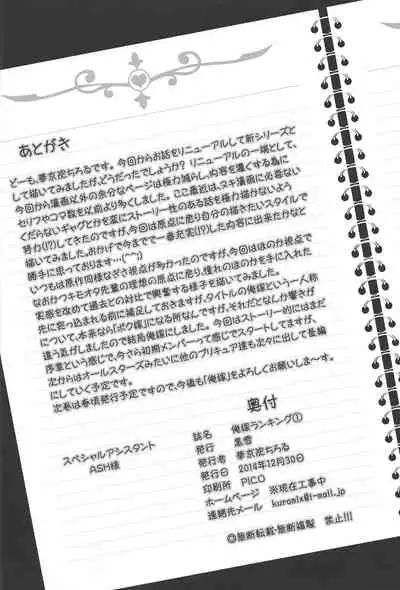 あとがき
どーも、夢京花ちろるです。今回からお話をリニューアルして新シリーズと
して描いてみましたが、どうだったでしょうか？リニューアルの一環として、
今回から漫画以外の余分なページは極力減らし、内容を濃くする為に
セリフやコマ数を以前より多くしました。ここ最近は、ヌキ漫画に必要ない
くだらないギャグとかを楽にストーリー性のある話を極力描かないよう
努力(!?)してきたのですが、今回は原点に戻り自分の描きたいスタイルで
描いてみました。おかげで今までで一番充実(!?)した内容に出来たかなと
勝手に思っております…(^^;)
いつもは原作同様なぎさ視点が多かったのですが、今回はほのか視点で
なおかつキモオタ先輩の理想の原点に戻り、憧れのほのかを手に入れた
実感を改めて過去との対比で興奮する様子を描いてみました。
先に突っ込まれる前に補足しておきますが、タイトルの俺嫁という一人称
について、本来なら「ボク嫁」になる所なんですが、それだとなんか響きが
違う気がしましたので結局俺嫁にしました。今回はストーリー的にはまだ
序章という感じで、今さら初期メンバーって感じでスタートしてますが、
次からはオールスターズみたいに他のプリキュア達も次々に出して長編
にしていく予定です。
次巻は春頃発行予定ですので、今後も「俺嫁」をよろしくお願いしま～す。
スペシャルアシスタント
ASH様
奥付
誌名 俺嫁ランキング①
発行 黒雪
発行日 2014年12月30日
印刷所 PICO
ホームページ ※現在工事中
連絡先メール
◎無断転載・無断複製 禁止!!!